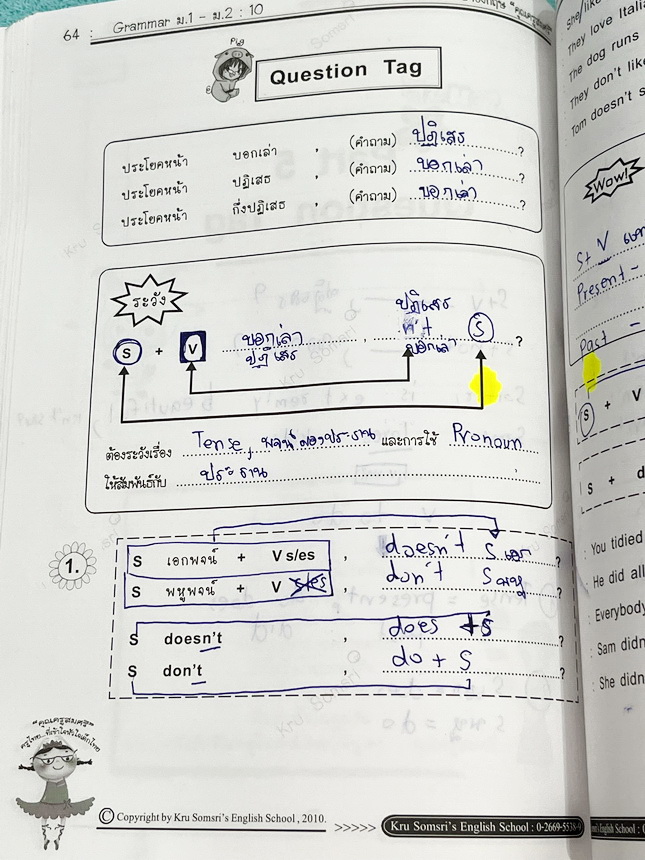 64 : Grammar ม.1 - ม.2 : 10
Pig
Question Tag
ประโยคหน้า บอกเล่า , (คำถาม) ปฏิเสธ ?
ประโยคหน้า ปฏิเสธ , (คำถาม) บอกเล่า ?
ประโยคหน้า กึ่งปฏิเสธ , (คำถาม) บอกเล่า ?
ระวัง
ปฏิเสธ
S + V บอกเล่า , n't S ?
ปฏิเสธ บอกเล่า
ต้องระวังเรื่อง Tense, พจน์ของประธาน และการใช้ Pronoun
ให้สัมพันธ์กับ ประธาน
1.
S เอกพจน์ + V s/es , doesn't S เอก ?
S พหูพจน์ + V s/es , don't S พหู ?
S doesn't , does + S ?
S don't , do + S ?
"คุณครูสมศรี"
ครูไทย...ที่เข้าใจหัวใจเด็กไทย
© Copyright by Kru Somsri's English School , 2010. >>>>> Kru Somsri's English School : 0-2669-5538-9
She/
They love Itali
The dog runs
They don't like
Tom doesn't s
Wow!
S + V
Present -
Past -
S + V
S + d
You tidied
He did all
Everybody
Sam didn
She didn
English School :